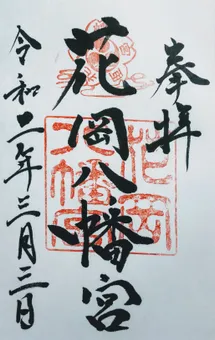 奉拝
花岡八幡宮
花岡八幡宮
令和二年三月三日